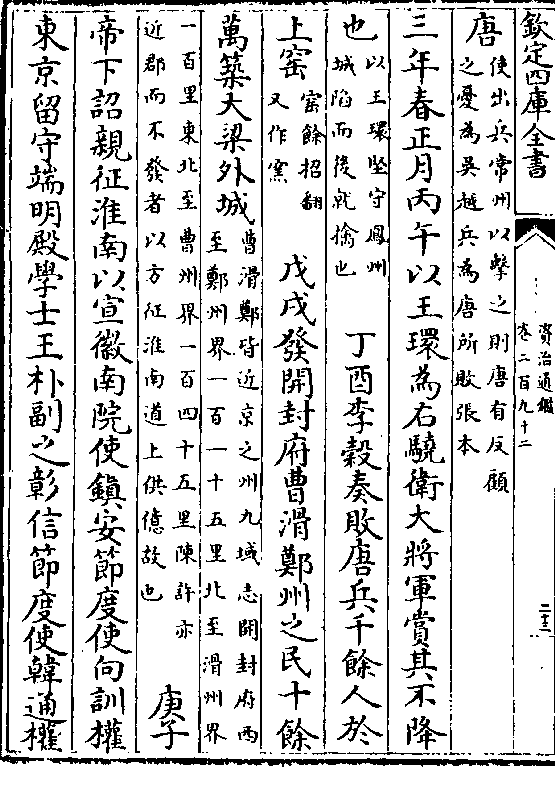 欽定四庫全書
資治通鑑
卷二百九十二
二十三
唐使出兵常州以擊之則唐有反顧
之憂為吳越兵為唐所敗張本
三年春正月丙午以王環為右驍衛大將軍賞其不降
也以王環堅守鳳州
城陷而後就擒也
丁酉李穀奏敗唐兵千餘人於
上窰窰餘招翻
又作窯
戊戌發開封府曹滑鄭州之民十餘
萬築大梁外城曹滑鄭皆近京之州九域志開封府西
至鄭州界一百一十五里北至滑州界
一百里東北至曹州界一百四十五里陳許亦
近郡而不發者以方征淮南道上供億故也
庚子
帝下詔親征淮南以宣徽南院使鎮安節度使向訓權
東京留守端明殿學士王朴副之彰信節度使韓通權